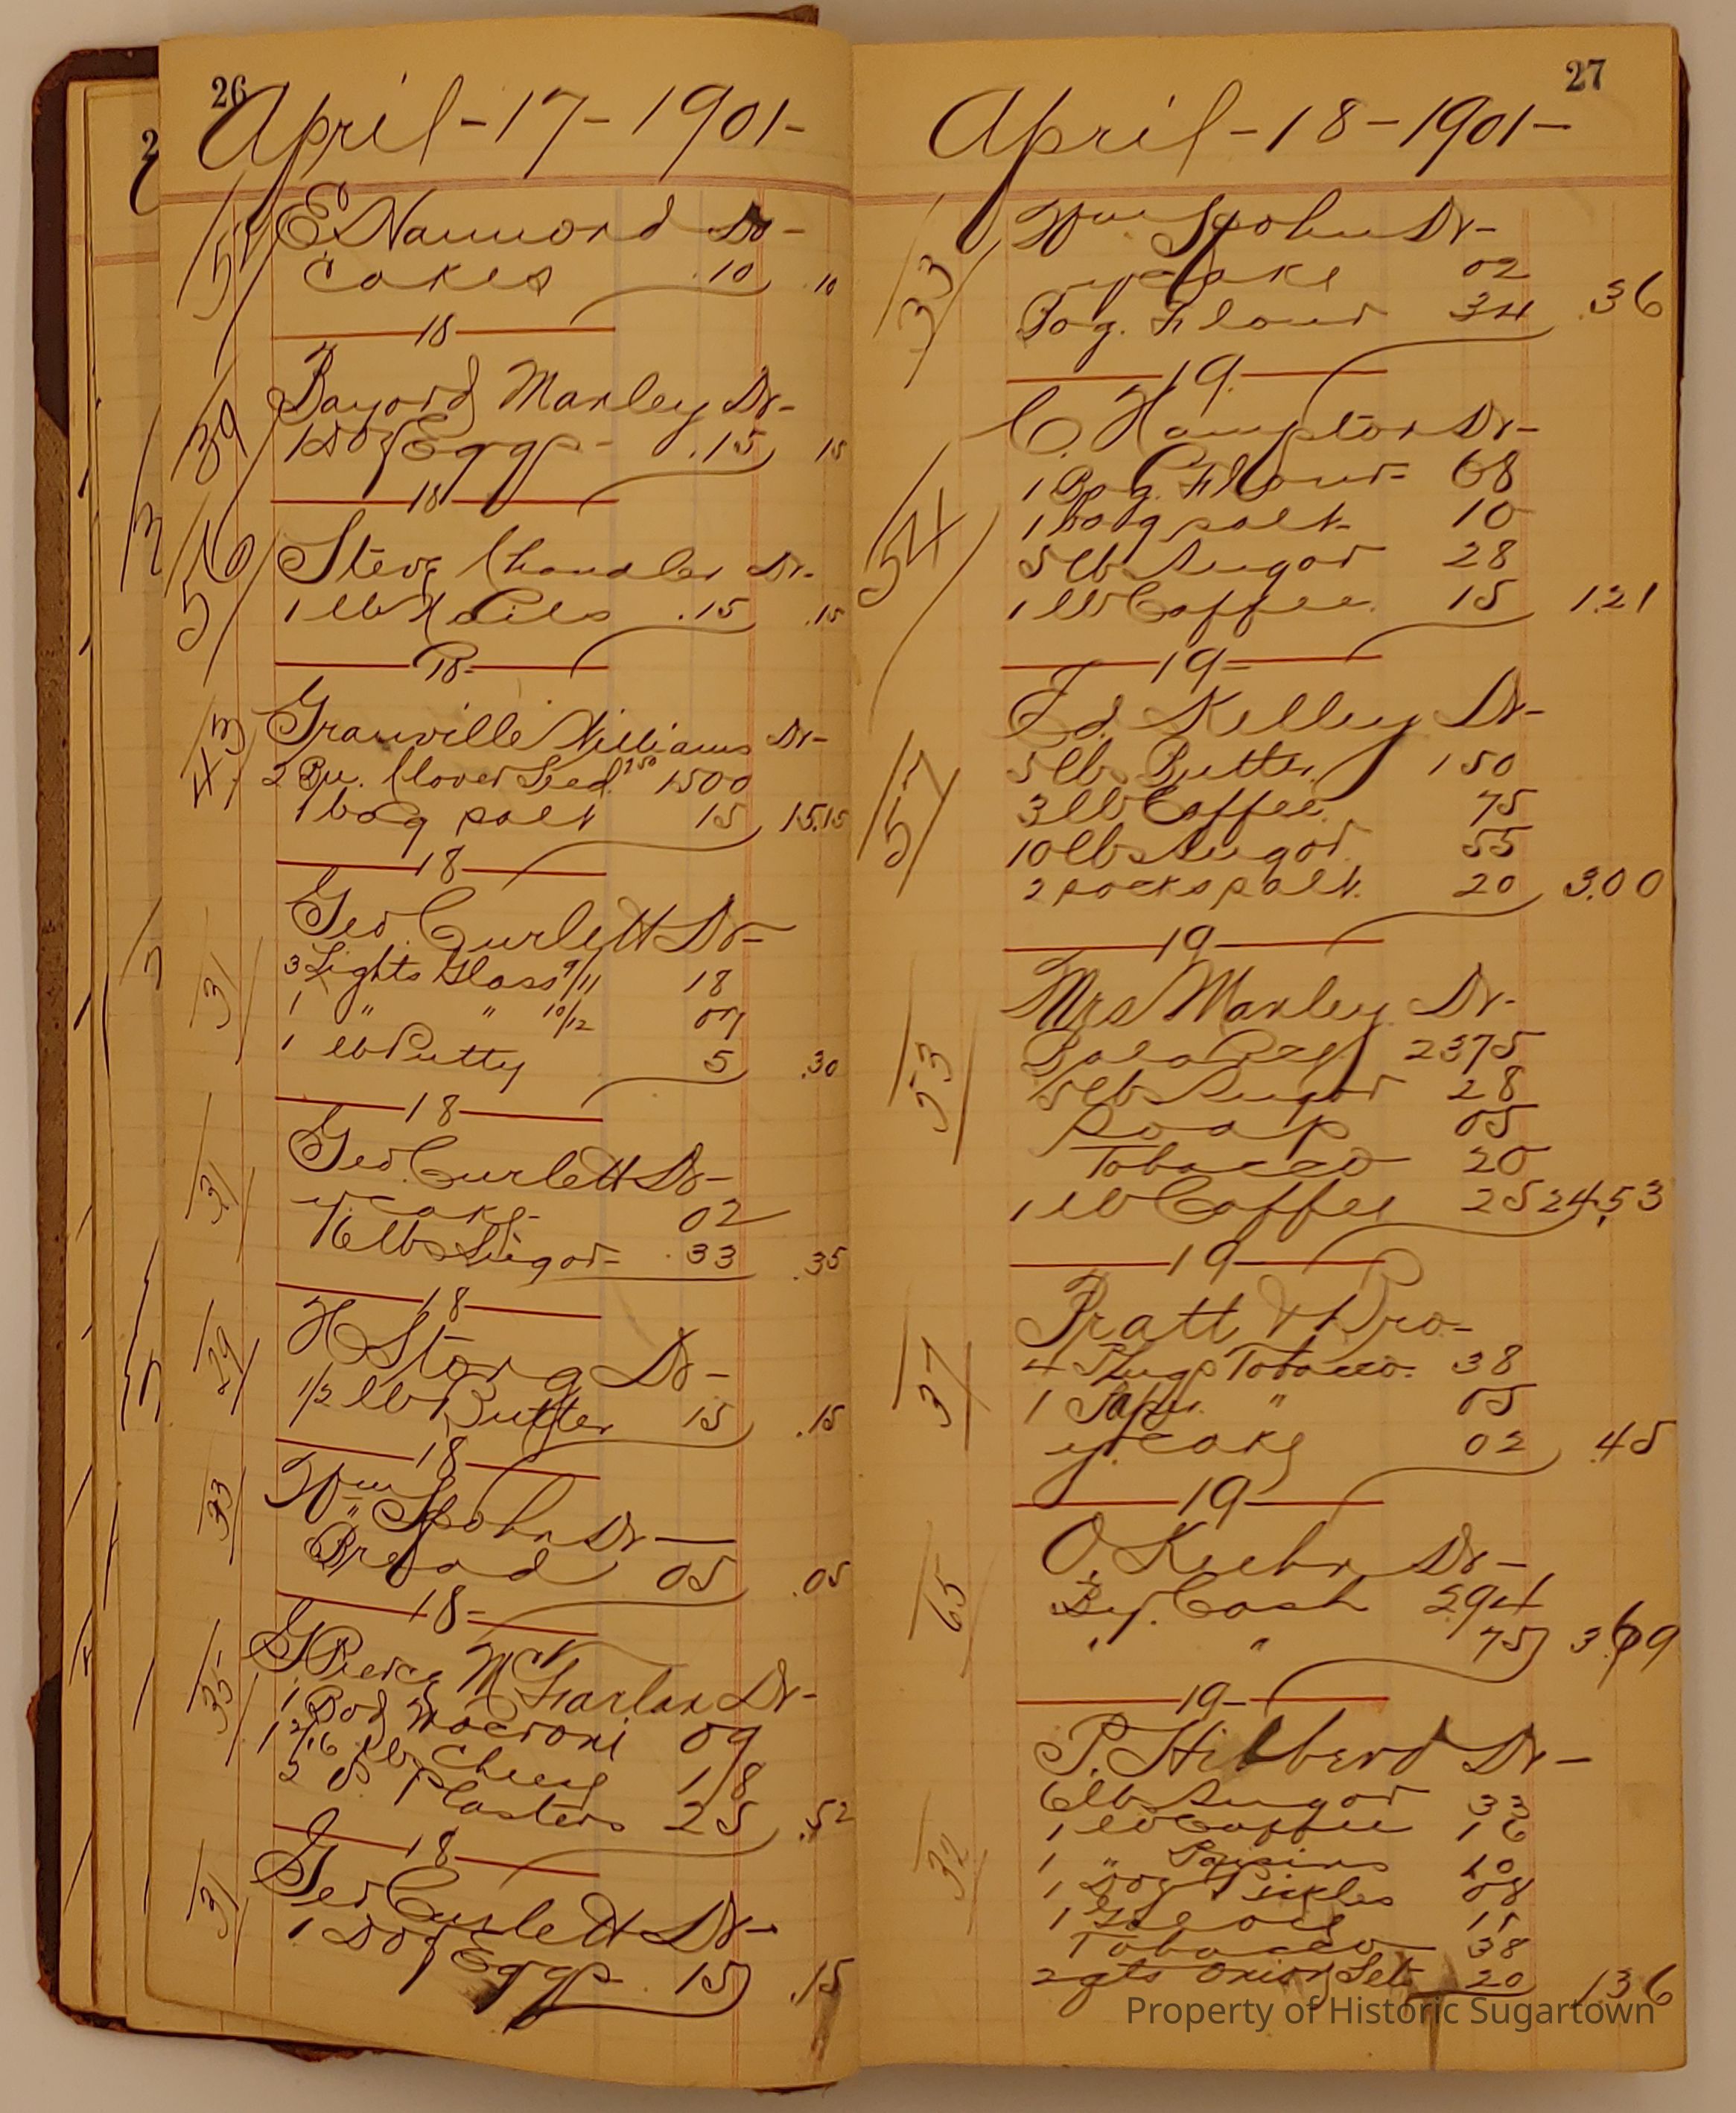 26
April-17-1901-
51 E Hammond Dr-
Cakes .10 .10
18
39 Bayard Manley Dr-
1 Doz Eggs- .15 15
18
56 Steve Chandler Dr-
1 lb .15 .15
18-
43 Granville Williams Dr-
2 Bu. Clover Seed 750 1500
1 bag salt 15 15.15
18
Geo. Curlett Dr-
31 3 Lights Glass 9/11 18
1 " " 10/12 07
1 lb Putty 5 .30
18
31 Geo. Curlett Dr-
y cake- 02
6 lbs Sugar- .33 .35
18
29 H Stong Dr-
1/2 lb Butter 15 .15
18
33 Wm Spohn Dr-
Bread 05 .05
18-
35 G Pierce McFarlan Dr-
1 Box Macroni 09
1 2/16 lb Cheese 18
2 Plasters 25 .52
18
31 Geo Curlett Dr-
1 Doz Eggs- 15 .15
27
April-18-1901-
33 Wm Spohn Dr-
y cake 02
Bag. Flour 34 .36
19.
C. Hampton Dr-
54 1 Bag. Flour- 68
1 bag salt- 10
5 lbs Sugar 28
1 lb Coffee. 15 1.21
19-
Ed. Kelley Dr-
57 5 lbs Butter 150
3 lb Coffee. 75
10 lbs Sugar. 55
2 sacks salt. 20 3.00
19-
Mrs Manley Dr-
53 Balance 2375
5 lbs Sugar 28
Soap 05
Tobacco 20
1 lb Coffee 25 24.53
19-
Pratt & Bro-
37 4 Plugs Tobacco. 38
1 Paper. " 05
y. cake 02 .45
19-
65 O. Kuhn Dr-
By. Cash 294
" " 75 3.69
19-
P. Hibberd Dr-
32 6 lb Sugar 33
1 lb Coffee 16
1 " Raisins 10
1 Doz Pickles 08
1 15
Tobacco 38
2 qts onion Sets 20 1.36
Property of Historic Sugartown